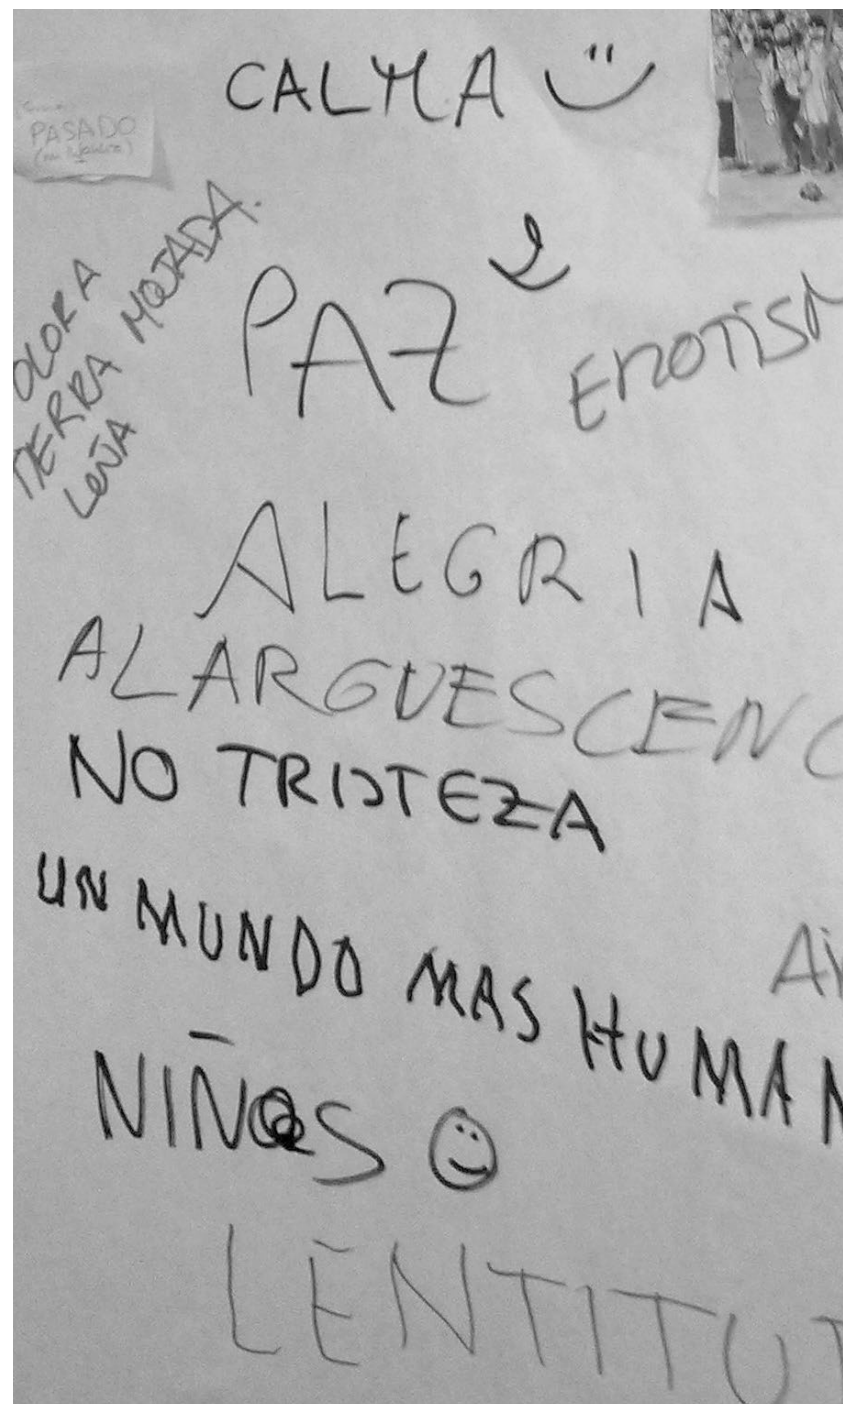 CALMA
PASADO
OLOR A
TIERRA MOJADA.
LEÑA
PAZ
EROTISM
ALEGRIA
ALARGUESCENC
NO TRISTEZA
UN MUNDO MAS HUMAN
NIÑ@S
LENTITUT